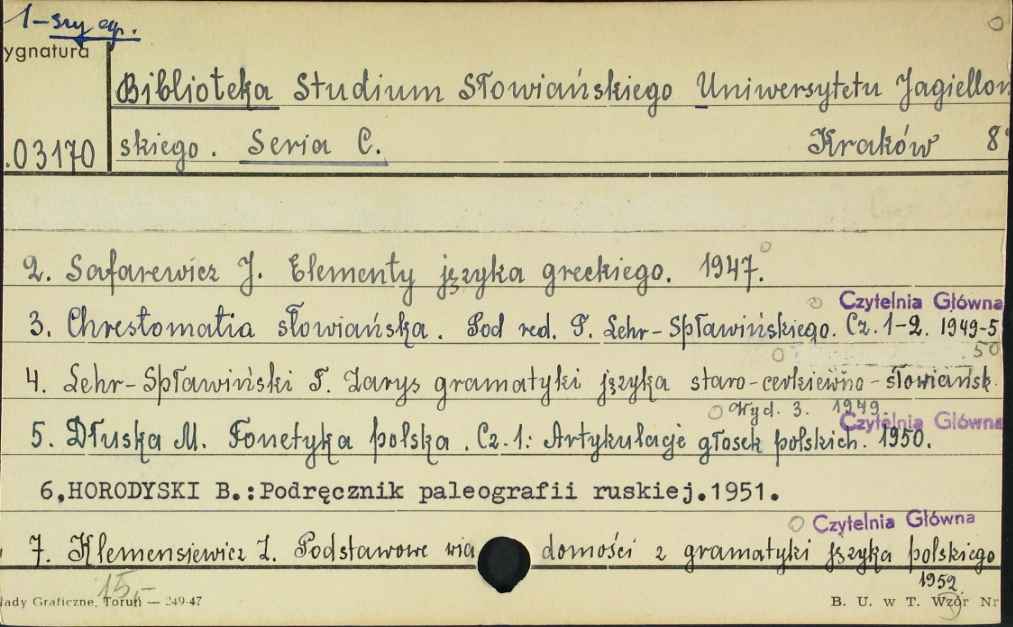 1-szy eg.
ygnatura
Biblioteka Studium Słowiańskiego Uniwersytetu Jagiellon
.03170 skiego. Seria C. Kraków 8°
2. Safarewicz J. Elementy języka greckiego. 1947.
Czytelnia Główna
3. Chrestomatia słowiańska. Pod red. T. Lehr-Spławińskiego. Cz. 1-2. 1949-5
50
4. Lehr-Spławiński T. Zarys gramatyki języka staro-cerkiewno-słowiańsk.
Wyd. 3. 1949.
Czytelnia Główna
5. Dłuska M. Fonetyka polska. Cz. 1: Artykulacje głosek polskich. 1950.
6,HORODYSKI B.:Podręcznik paleografii ruskiej.1951.
Czytelnia Główna
7. Klemensiewicz Z. Podstawowe wia domości z gramatyki języka polskiego
1952
15,-
łady Graficzne, Toruń — 249-47 B. U. w T. Wzór Nr